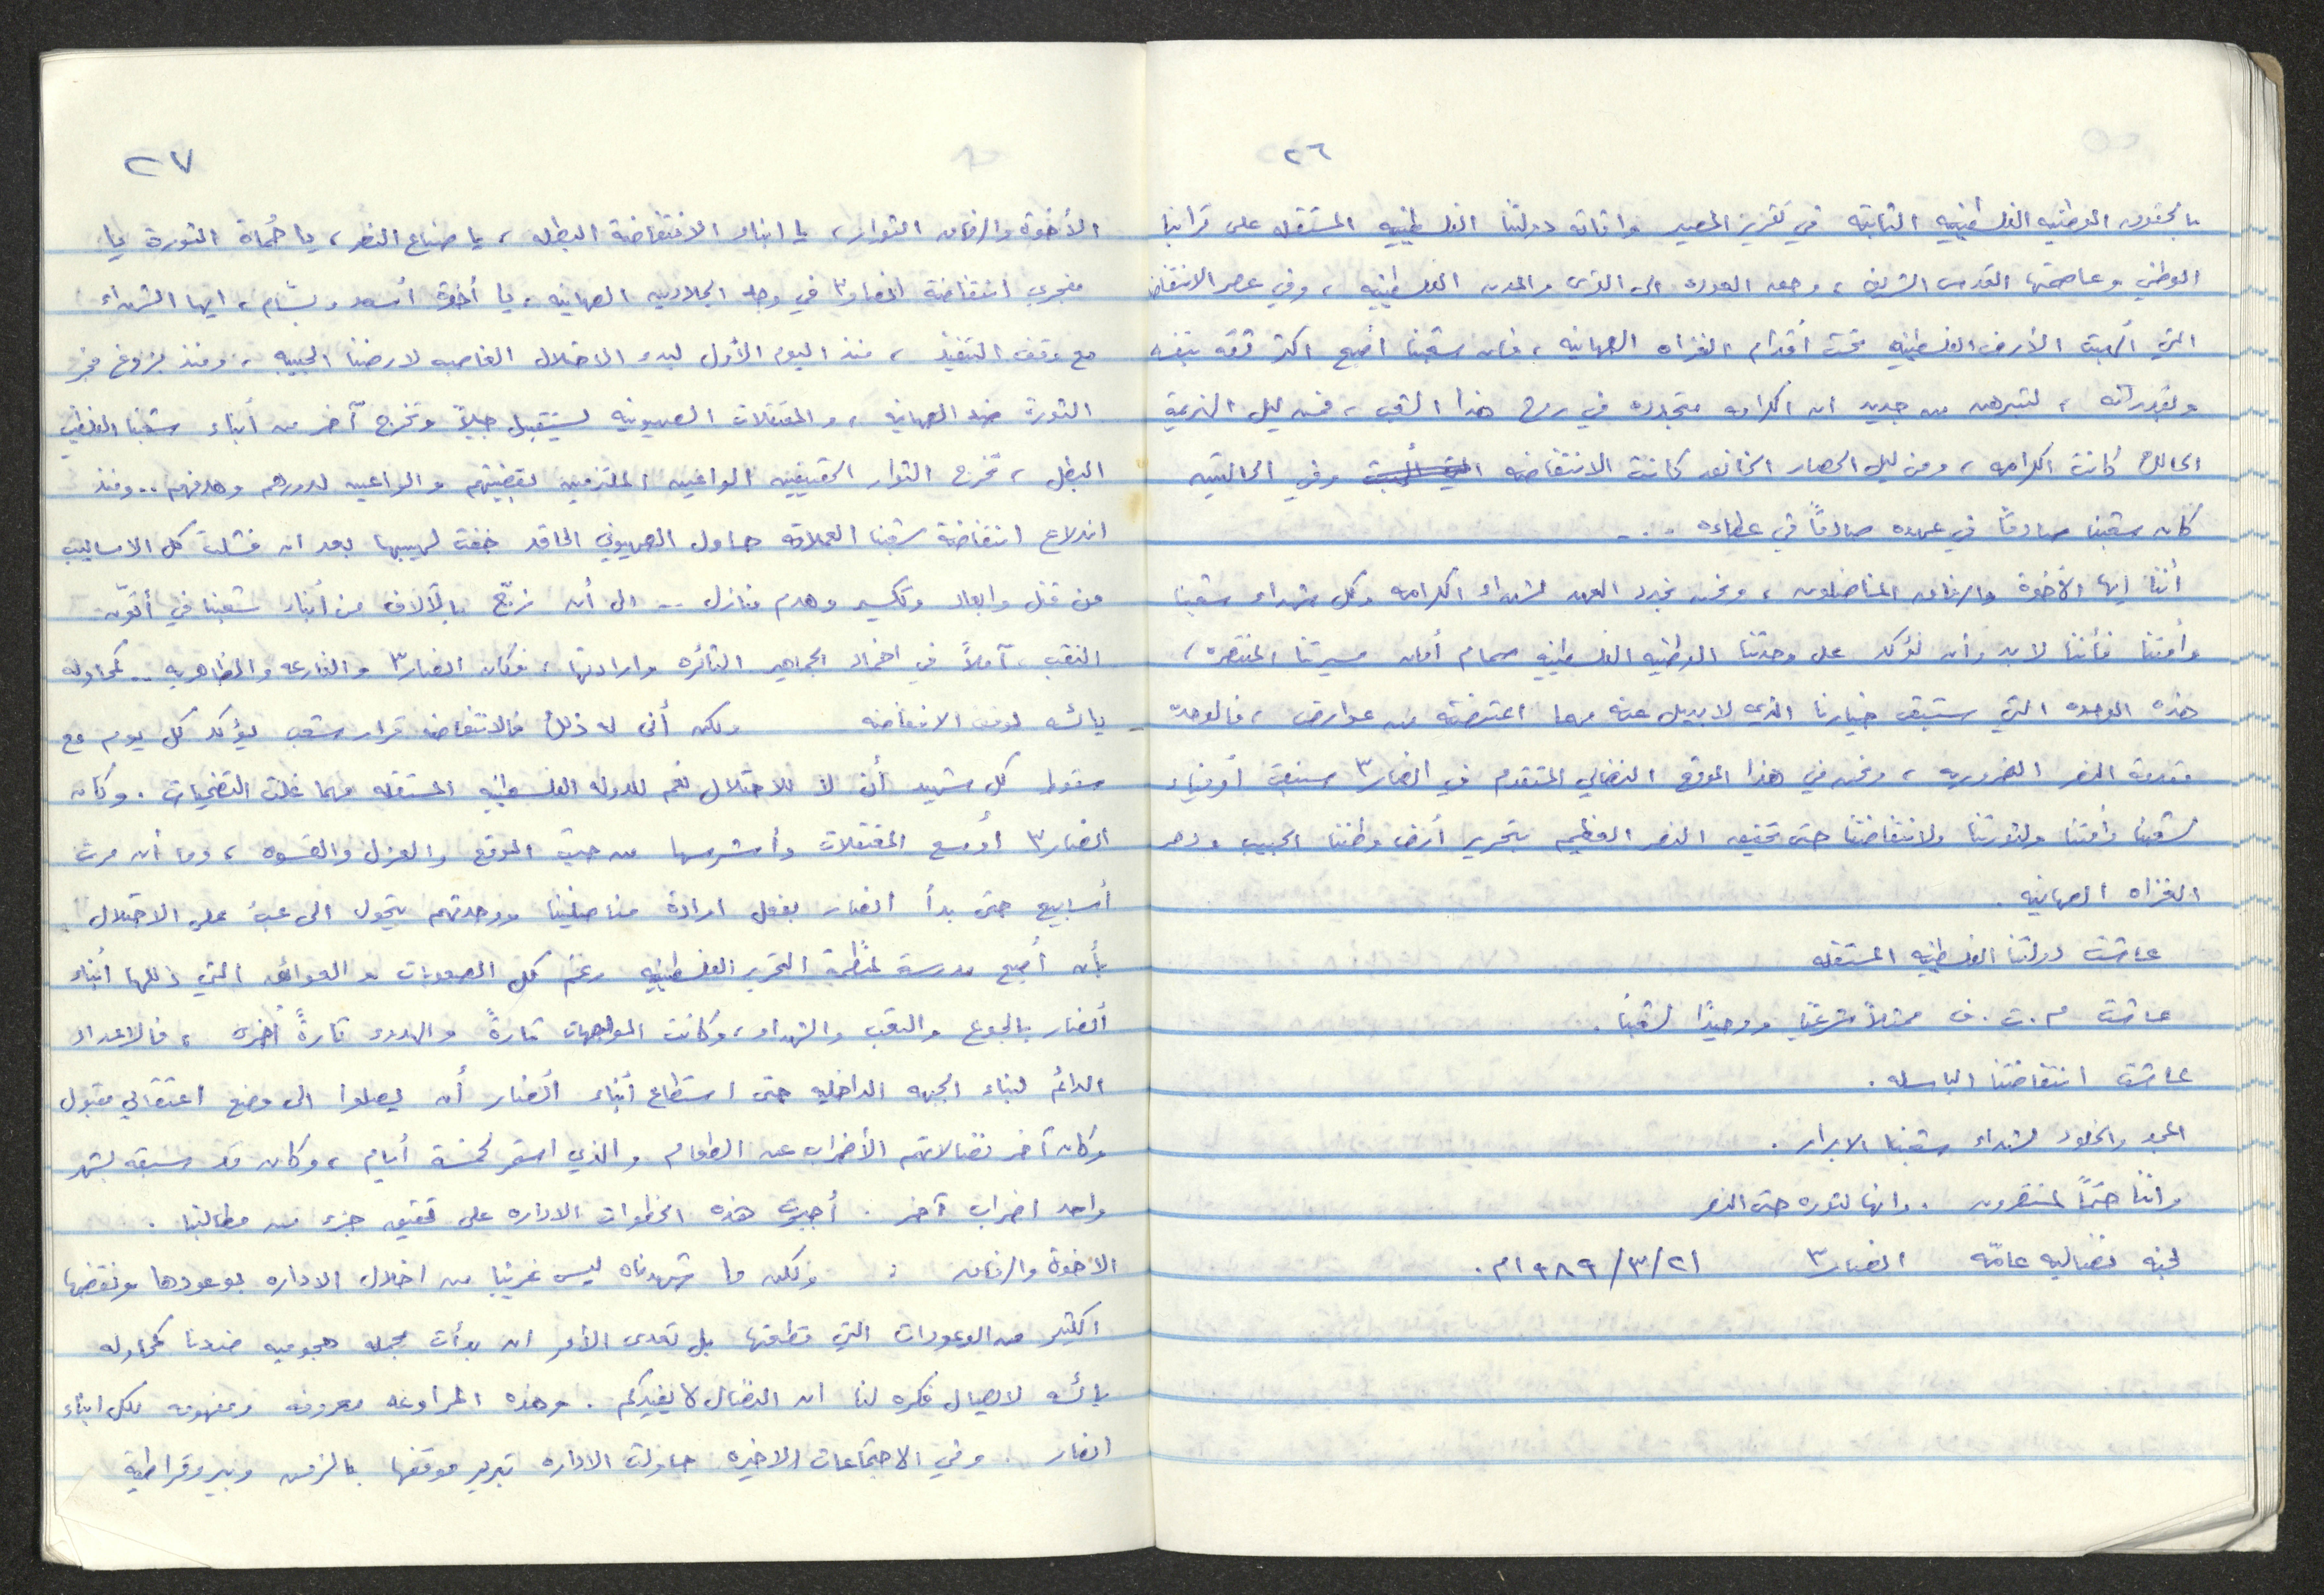 ٢٦
بالحقوق الوطنيه الفلسطينيه الثابته في تقرير المصير واقامة دولتنا الفلسطينيه المستقله على ترابنا
الوطني وعاصمتها القدس الشريف ، وحق العوده الى القرى والمدن الفلسطينيه ، وفي عصر الانتفاضه
التي ألهبت الأرض الفلسطينيه تحت أقدام الغزاه الصهاينه ، فان شعبنا أصبح اكثر ثقه بنفسه
وبقدراته ، لتبرهن من جديد ان الكرامه متجدده في روح هذا الشعب ، فمن ليل الهزيمة
الحالك كانت الكرامه ، ومن ليل الحصار الخانق كانت الانتفاضه وفي الحالتين
كان شعبنا صادقاً في عهده صادقاً في عطاءه ...
أننا ايها الأخوة والرفاق المناضلون ، ونحن نجدد العهد لشهداء الكرامه وكل شهداء شعبنا
وأمتنا فأننا لا بد وأن نؤكد على وحدتنا الوطنيه الفلسطينيه صمام أمان مسيرتنا المنتصره ،
هذه الوحده التي ستبقى خيارنا الذي لا بديل عنه مهما اعترضته من عوارض ، فالوحدة
مقدمة النصر الضروريه ، ونحن في هذا الموقع النضالي المتقدم في أنصار٣ سنبقى أوفياء
لشعبنا وأمتنا ولثورتنا ولانتفاضتنا حتى تحقيق النصر العظيم بتحرير أرض وطننا الحبيب ودحر
الغزاه الصهاينه .
عاشت دولتنا الفلسطينيه المستقله
عاشت م . ت . ف ممثلاً شرعيًا ووحيدًا لشعبنا .
عاشت انتفاضتنا الباسله .
المجد والخلود لشهداء شعبنا الابرار .
واننا حتمًا لمنتصرون . وانها لثوره حتى النصر
لجنه نضاليه عامّه انصار٣ ٢١/٣/١٩٨٩م .
٢٧
الأخوة والرفاق الثوار ، يا ابناء الانتفاضة البطله ، يا صناع النصر ، يا حُماة الثورة يا
مفجري انتفاضة انصار٣ في وجه الجلادين الصهاينه ، يا أخوة أسعد وبسّام ، ايها الشهداء
مع وقف التنفيذ ، منذ اليوم الأول لبدء الاحتلال الغاصب لارضنا الحبيبه ، ومنذ بزوغ فجر
الثورة ضد الصهاينه ، والمعتقلات الصهيونيه لتستقبل جيلاً وتخرج آخر من أبناء شعبنا الفلسطيني
البطل ، تخرج الثوار الحقيقيين الواعين الملتزمين بقضيتهم والواعين لدورهم وهدفهم .. ومنذ
اندلاع انتفاضة شعبنا العملاقه حاول الصهيوني الحاقد خفت لهيبها بعد ان فشلت كل الاساليب
من قتل وابعاد وتكسير وهدم منازل .. الى أن زجّ بالآلاف من أبناء شعبنا في أتون
النقب ، آملاً في اخماد الجماهير الثائره وارادتها ، فكان انصار٣ والفارعه والظاهريه .. كمحاوله
يائسه لوقف الانتفاضه ولكن أنى له ذلك فالانتفاضه قرار شعب يؤكد كل يوم مع
سقوط كل شهيد أن لا للاحتلال نعم للدوله الفلسطينيه المستقله مهما غلت التضحيات . وكان
انصار٣ أوسع المعتقلات وأشرسها من حيث الموقع والعزل والقسوه ، وما أن مرت
أسابيع حتى بدأ أنصار بفعل ارادة مناضلينا ووحدتهم يتحول الى عبء على الاحتلال .
بأن أصبح مدرسة لمنظمة التحرير الفلسطينيه رغم كل الصعوبات والعوائق التي ذللها أبناء
أنصار بالجوع والتعب والشهداء ، وكانت المواجهات تارةً والهدوء تارةً أخرى ، فالاعداد
الدائم لبناء الجبهه الداخليه حتى استطاع أبناء أنصار أن يصلوا الى وضع اعتقالي مقبول
وكان آخر نضالاتهم الأضراب عن الطعام والذي استمر لخمسة أيام ، وكان قد سبقه بشهر
واحد اضراب آخر . أجبرت هذه الخطوات الاداره على تحقيق جزء من مطالبنا .
الاخوة والرفاق : ولكن ما شهدناه ليس غريبًا من اخلال الاداره بوعودها ونقضها
الكثير من الوعودات التي قطعتها بل تعدى الأمر ان بدأت بحمله هجوميه ضدنا كمحاوله
يائسه لايصال فكره لنا ان النضال لا يفيدكم . وهذه المراوغه معروفه ومفهومه لكل ابناء
انصار . وفي الاجتماعات الاخيره حاولت الاداره تبرير موقفها بالزمن وبيروقراطية